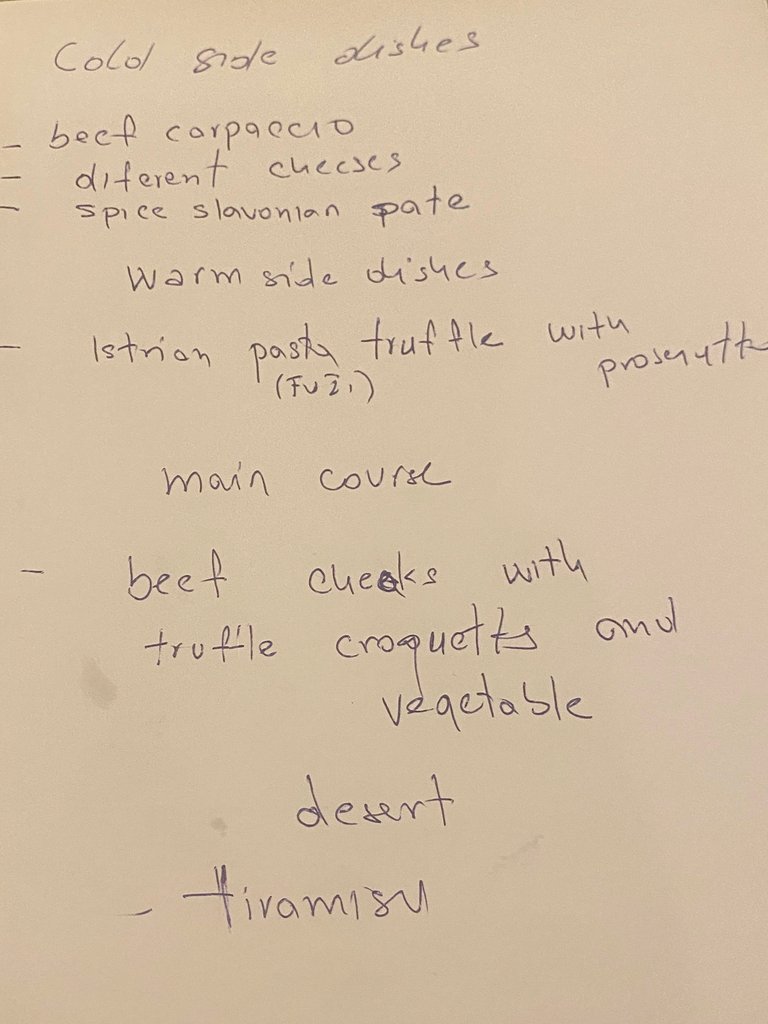 Cold side dishes
- beef carpaccio
- diferent cheeses
- spice slavonian pate
Warm side dishes
- Istrian pasta truffle with
prosciutto
(FUŽI)
main course
- beef cheeks with
truffle croquetts and
vegetable
desert
- tiramisu